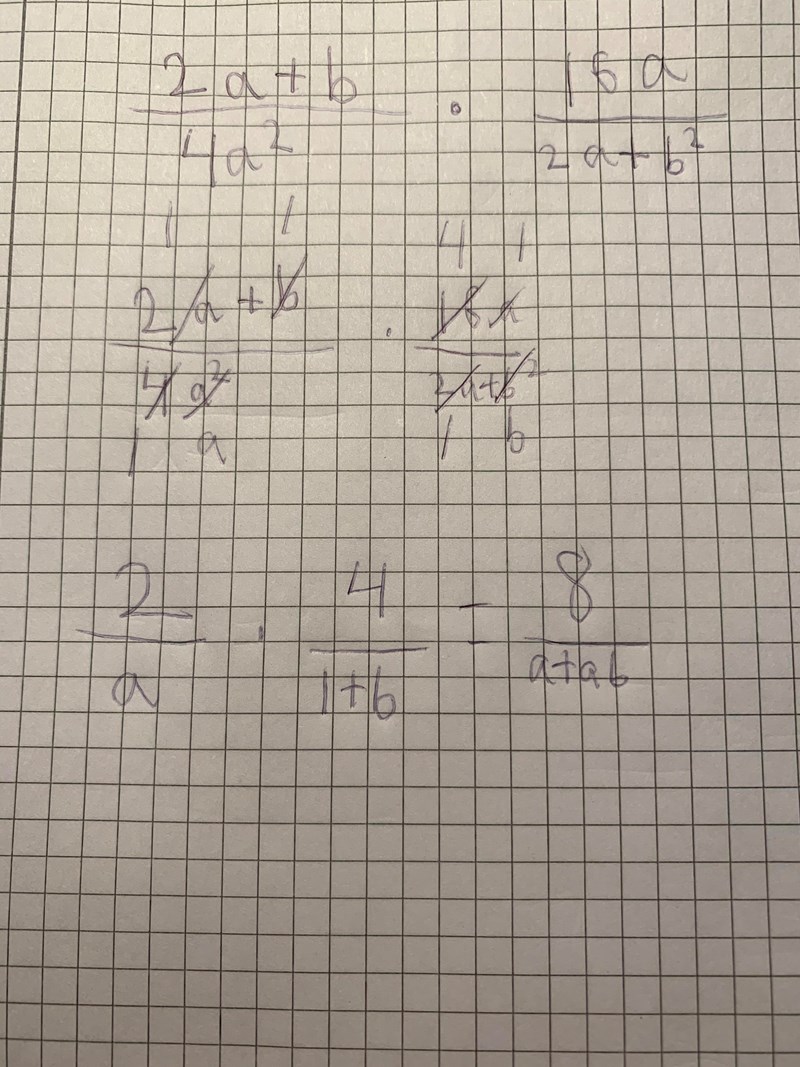 2a+b/4a² · 16a/2a+b²
1 1 4 1
2a+b/4a² · 16a/2a+b²
1 a 1 b
2/a · 4/1+b = 8/a+ab